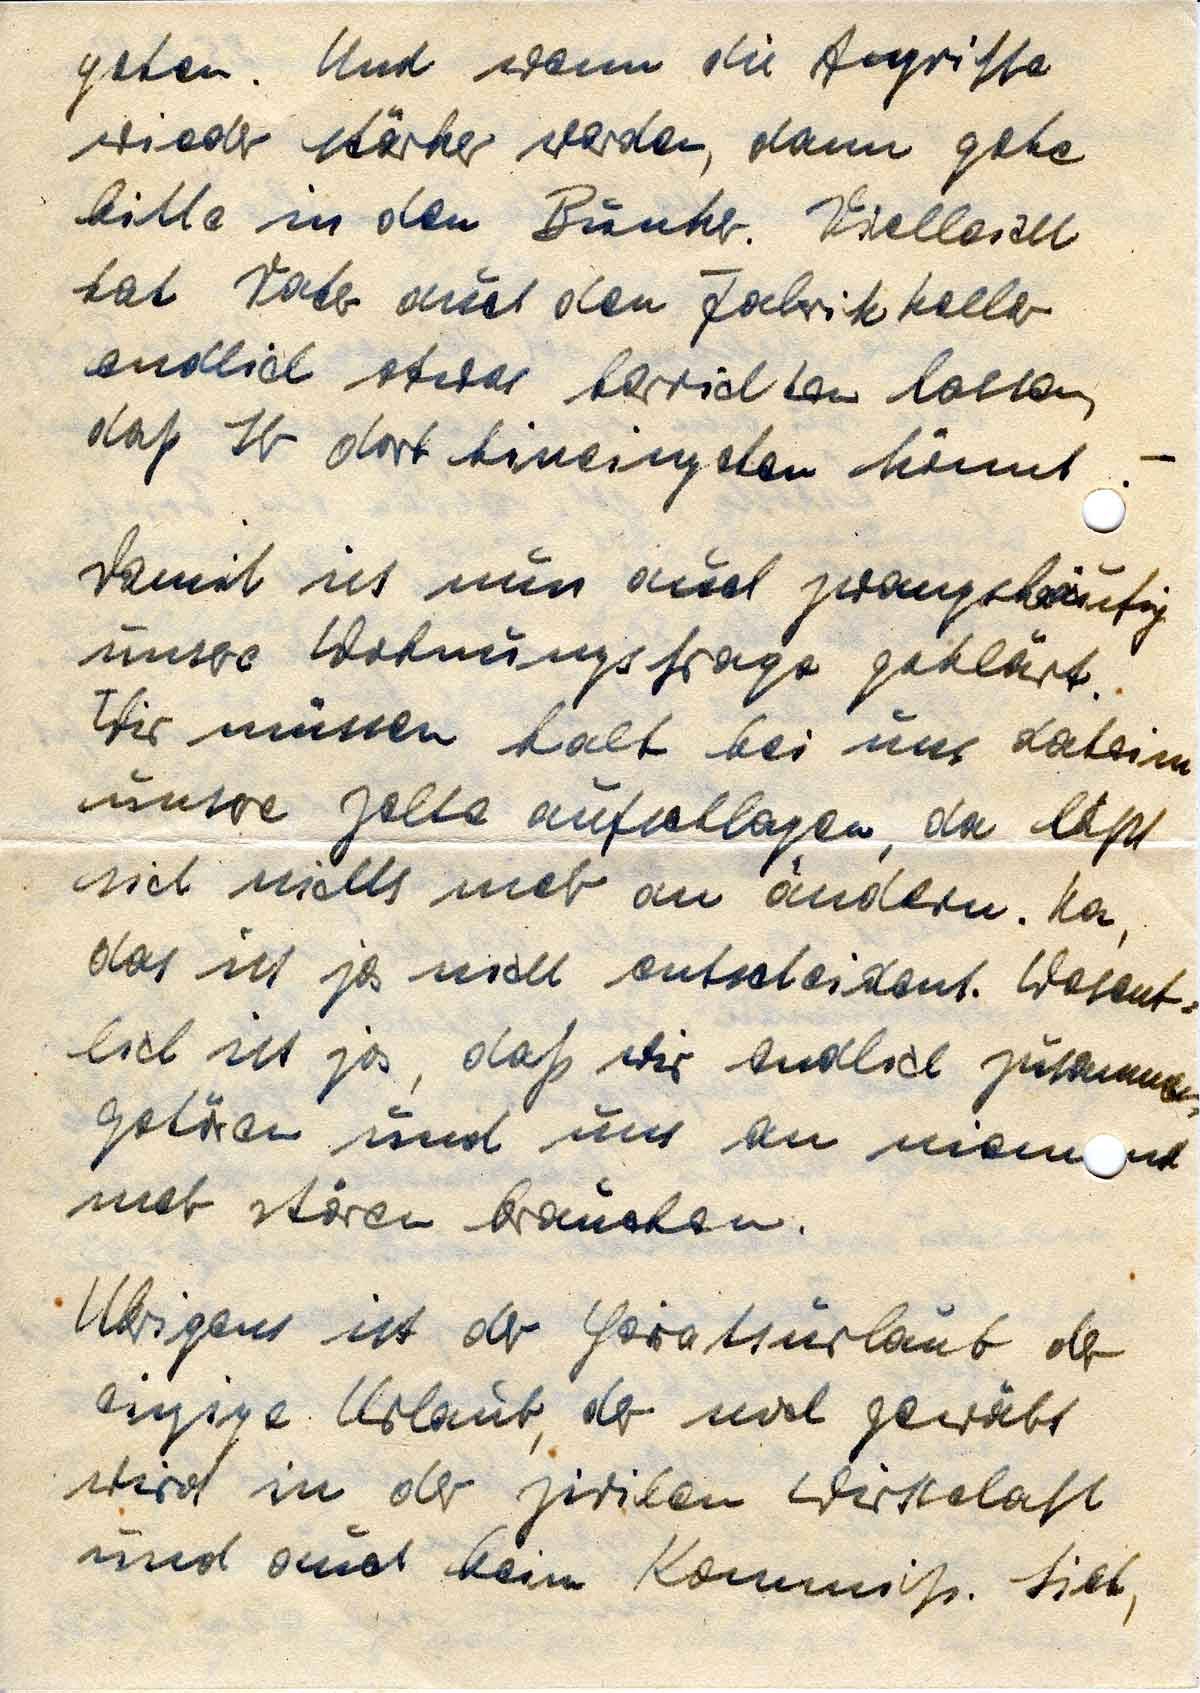 gehen. Und wenn die Angriffe
wieder stärker werden, dann gehe
bitte in den Bunker. Vielleicht
hat Vater auch den Fabrikkeller
endlich etwas herrichten lassen,
daß Ihr dort hineingehen könnt. –
Damit ist nun auch zwangsläufig
unsere Wohnungsfrage geklärt.
Wir müssen halt bei uns daheim
unsere Zelte aufschlagen, da läßt
sich nichts mehr an ändern. Na,
das ist ja nicht entscheident. Wesent-
lich ist ja, daß wir endlich zusammen-
gehören und uns an niemand
mehr stören brauchen.
Übrigens ist der Heiratsurlaub der
einzige Urlaub, der noch gewährt
wird in der zivilen Wirtschaft
und auch beim Kommiß. Sieh,